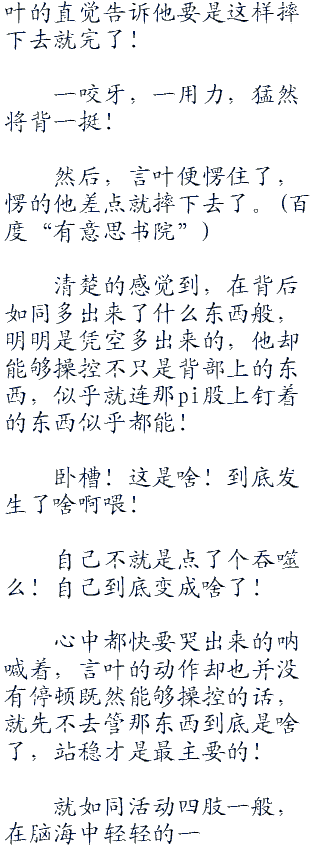 叶的直觉告诉他要是这样摔
下去就完了！
一咬牙，一用力，猛然
将背一挺！
然后，言叶便愣住了，
愣的他差点就摔下去了。(百
度“有意思书院”)
清楚的感觉到，在背后
如同多出来了什么东西般，
明明是凭空多出来的，他却
能够操控不只是背部上的东
西，似乎就连那pi股上钉着
的东西似乎都能！
卧槽！这是啥！到底发
生了啥啊喂！
自己不就是点了个吞噬
么！自己到底变成啥了！
心中都快要哭出来的呐
喊着，言叶的动作却也并没
有停顿既然能够操控的话，
就先不去管那东西到底是啥
了，站稳才是最主要的！
就如同活动四肢一般，
在脑海中轻轻的一